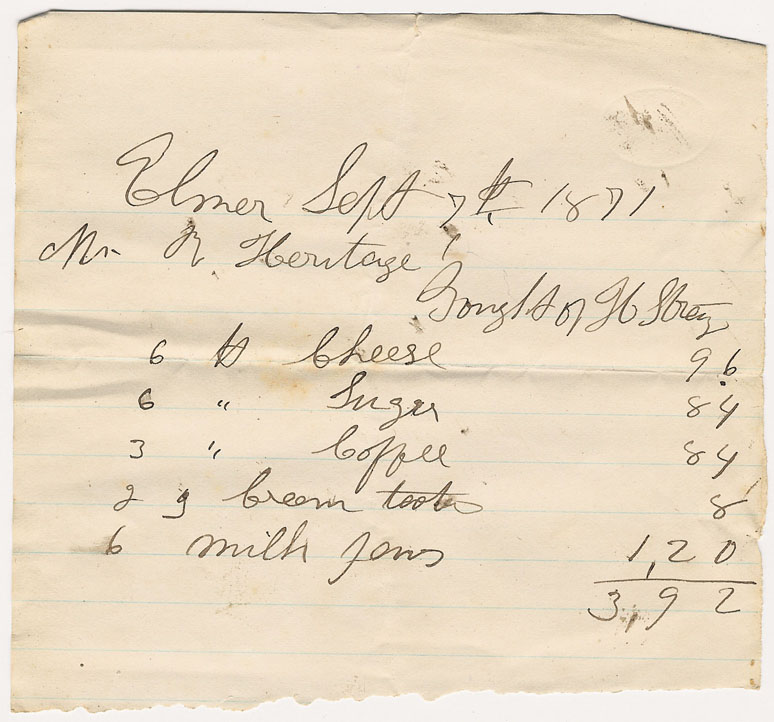 Elmer Sept 7th, 1871
Mr R Heritage
Bought of H Strey
6 lb Cheese 96
6 " Sugar 84
3 " Coffee 84
2 Cream 8
6 milk pans 1,20
3,92